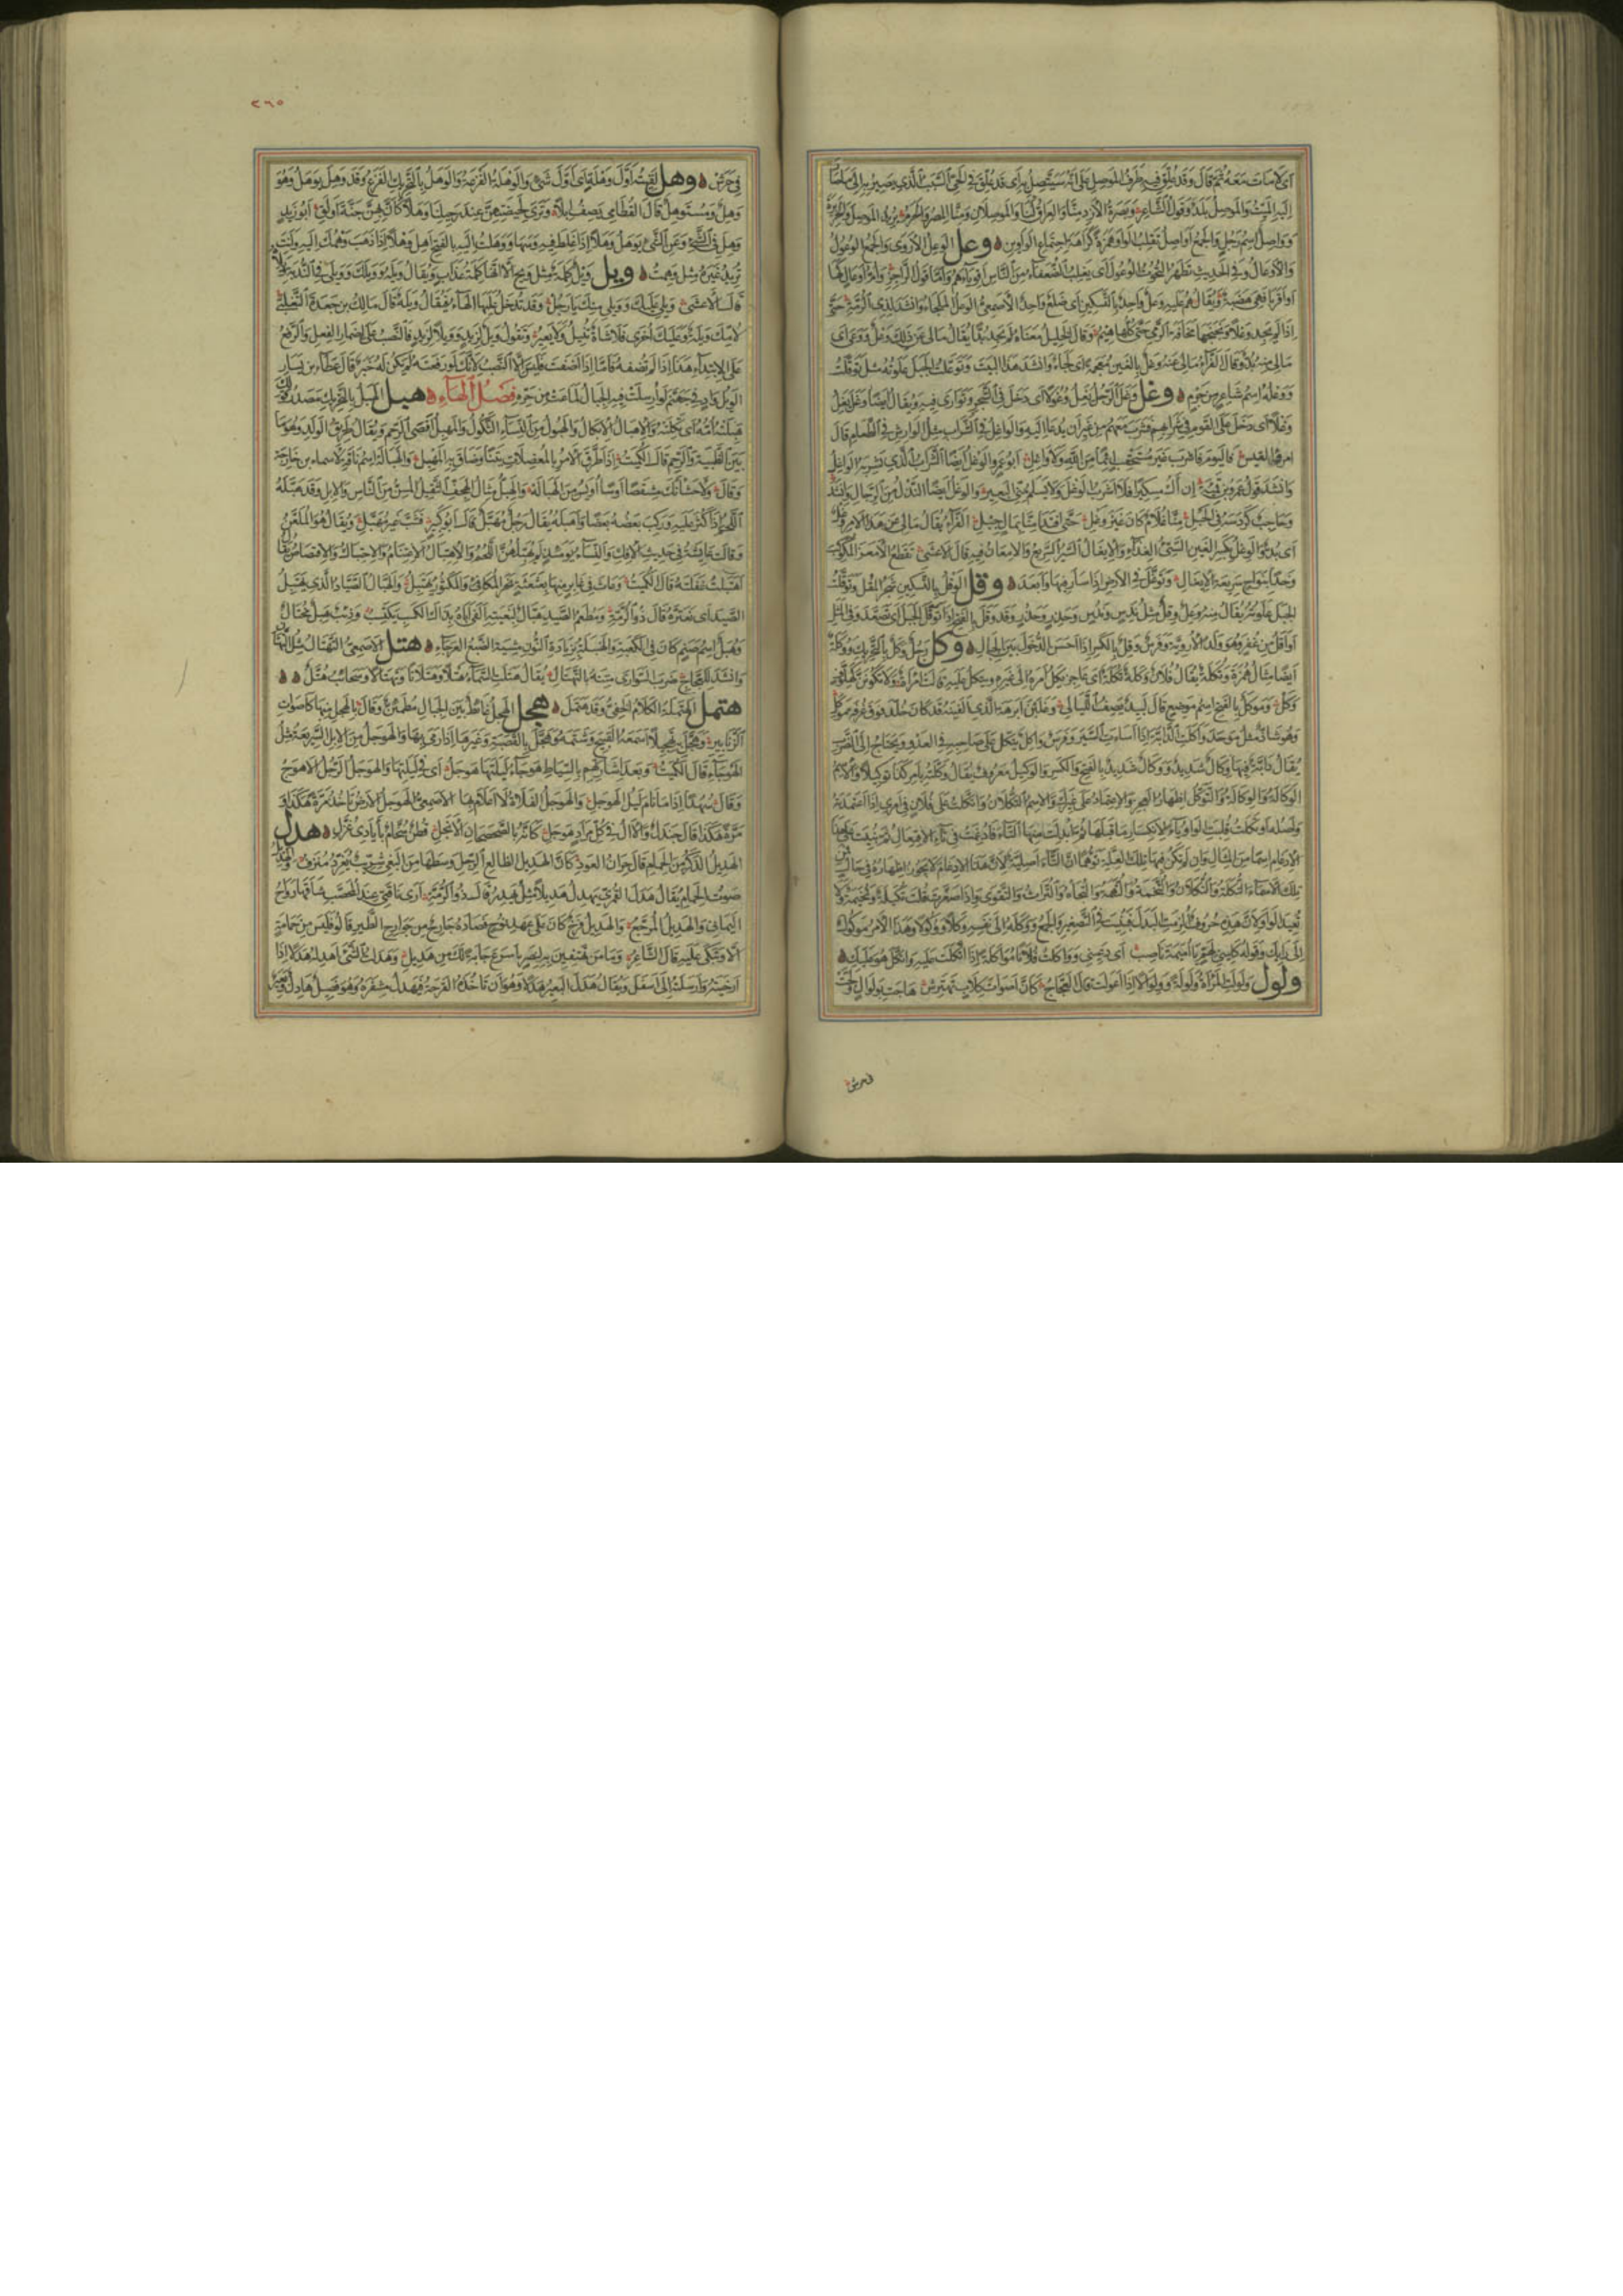 اي لامات معه ثم قال وقد علق فيه طرف الموصل علي انه سيتصل به اي قد علق في الحي السبب الذي يصير به الي ما
اليه الميت والموصل بلد وقول الشاعر وبصرة الازد منا والعراق لنا والموصلان ومنا المصر والحرم يريد الموصل والجزيرة
وواصل اسم رجل والجمع اواصل تقلب الواو همزة كراهة اجتماع الواوين وعل الوعل الاروي والجمع الوعول
والاوعال وفي الحديث تظهر التحوت الوعول اي يغلب الضعفاء من الناس اقوياءهم واما قول الراجز وام اوعال كها
او اقربا فهي هضبة ويقال هم عليه وعل واحد بالتسكين اي ضلع واحد الاصمعي الوعل الملجأ وانشد لذي الرمة حتي
اذا لم يجد وعلا ونجنجها مخافة الرمي حتي كلها هيم وقال الخليل معناه لم يجد بدا يقال مالي عن ذلك وعل ووعي اي
مالي منه بد وقال الفراء مالي عنه وغل بالغين معجمة اي لجاء وانشد هذا البيت وتوعلت الجبل علوته مثل توقلت
ووعلة اسم شاعر من جرم وغل وغل الرجل يغل وغولا اي دخل في الشجر وتواري فيه ويقال ايضا وغل يغل
وغلا اي دخل علي القوم في شرابهم فشرب معهم من غير ان يدعا اليه والواغل في الشراب مثل الوارش في الطعام قال
امرؤ القيس فاليوم فاشرب غير مستحقب اثما من الله ولا واغل ابو عمرو الوغل ايضا الشراب الذي يشربه الواغل
وانشد قول عمرو بن قميئة ان اك مسكيرا فلا اشرب الوغل ولا يسلم مني البعير والوغل ايضا النذل من الرجال وانشد
وحاجب كردسه في الحبل منا غلام كان غير وغل حتي افتدي منا بمال جبل الفراء يقال مالي عن هذا الامر وغل
اي بد والوغل بكسر الغين السيئ الغذاء والايغال السير السريع والامعان فيه قال الاعشي تقطع الامعز المكوكب
وخدا بنواج سريعة الايغال وتوغل في الارض اذا سار فيها وابعد وقل الوقل بالتسكين شجر المقل وتوقلت
الجبل علوته يقال منه وعل وقل مثل ندس وندس وحذر وحذر وقد وقل بالفتح اذا توقل الجبل اي صعد وفي المثل
اوقل من غفر وهو ولد الاروية وفرس وقل بالكسر اذا احسن الدخول بين الجبال وكل رجل وكل بالتحريك ووكلة
ايضا مثال همزة وتكلة يقال فلان وكلة تكلة اي عاجز يكل امره الي غيره ويتكل عليه قالت امراة ولا تكونن كهلوف
وكل وموكل بالفتح اسم موضع قال لبيد يصف الليالي وغلبن ابرهة الذي الفينه قد كان خلد فوق غرفة موكل
وهو شاذ مثل موحد وواكلت الدابة اذا اساءت السير وفرس واكل يتكل علي صاحبه في العدو ويحتاج الي الضرب
يقال دابة فيها وكال شديد ووكال شديد بالفتح والكسر والوكيل معروف يقال وكلته بامر كذا توكيلا والاسم
الوكالة والوكالة والتوكل اظهار العجز والاعتماد علي غيرك والاسم التكلان واتكلت علي فلان في امري اذا اعتمدته
واصله اوتكلت قلبت الواو ياء لانكسار ما قبلها ثم ابدلت منها التاء فادغمت في تاء الافتعال ثم بنيت علي هذا
الادغام اسما من المثال وان لم تكن فيها تلك العلة توهما ان التاء اصلية لان هذا الادغام لا يجوز اظهاره في حال
تلك الاسماء التكلة والتكلان والتخمة والتهمة والتجاه والتراث والتقوي واذا صغرت قلت تكيلة وتخيمة ولا
تعيد الواو لان هذه حروف الزمت البدل فبقيت في التصغير والجمع ووكله الي نفسه وكلا ووكولا وهذا الامر موكول
الي رايك وقوله كليني لهم يا اميمة ناصب اي دعيني وواكلت فلانا مواكلة اذا اتكلت عليه واتكل هو عليك
ولول ولولت المراة ولولة وولوالا اذا اعولت قال العجاج كان اصوات كلاب تهترش هاجت بولوال ولجت
في حرش
٢٦٥
في حرش وهل لقيته اول وهلة اي اول شيء والوهلة الفزعة والوهل بالتحريك الفزع وقد وهل يوهل وهو
وهل ومستوهل قال القطامي يصف ابلا وتري لجيضتهن عند رحيلنا وهلا كان بهن جنة اولق ابو زيد
وهل في الشيء وعن الشيء يوهل وهلا اذا غلط فيه وسها ووهلت اليه بالفتح اهل وهلا اذا ذهب وهمك اليه وانت
تريد غيره مثل وهمت ويل ويل كلمة مثل ويح الا انها كلمة عذاب ويقال ويله وويلك وويلي وفي الندبة ويلاه
قال الاعشي ويلي عليك وويلي منك يا رجل وقد تدخل عليها الهاء فيقال ويلة قال مالك بن جعدة التغلبي
لامك ويلة وعليك اخري فلا شاة تنيل ولا بعير وتقول ويل لزيد وويلا لزيد فالنصب علي اضمار الفعل والرفع
علي الابتداء هذا اذا لم تضفه فاما اذا اضفت فليس الا النصب لانك لو رفعته لم يكن له خبر قال عطاء بن يسار
الويل واد في جهنم لو ارسلت فيه الجبال لماعت من حره فصل الهاء هبل الهبل بالتحريك مصدر قولك
هبلته امه اي ثكلته والاهبال الاثكال والهبول من النساء الثكول والمهبل اقصي الرحم ويقال طريق الولد وهو ما
بين الظبية والرحم قال الكميت اذا طرق الامر بالمعضلات يتنا وضاق به المهبل والهبالة اسم ناقة لاسماء بن خارجة
وقال ولاحشانك مشقصا اوسا اويس من الهبالة والهبل مثال الهجف الثقيل المسن من الناس والابل وقد هبله
اللحم اذا كثر عليه وركب بعضه بعضا واهبله يقال رجل مهبل قال ابو كبير فشب غير مهبل ويقال هو الملعن
وقالت عائشة في حديث الافك والنساء يومئذ لم يهبلهن اللحم والاهتبال الاغتنام والاحتيال والاقتصاص يقال
اهتبلت غفلته قال الكميت وعاث في غابر منها بعثعثة نحر المكافئ والمكثور يهتبل والهبال الصياد الذي يهتبل
الصيد اي يغتره قال ذو الرمة ومطعم الصيد هبال لبغيته الفي اباه بذاك الكسب يكتسب وذئب هبل محتال
وهبل اسم صنم كان في الكعبة والهنبلة بزيادة النون مشية الضبع العرجاء هتل الاصمعي التهتال مثل التهتان
وانشد للعجاج ضرب السواري متنه بالتهتال يقال هتلت السماء هتلا وهتلانا وتهتالا وسحائب هتل
هتمل الهتملة الكلام الخفي وقد هتمل هجل الهجل غائط بين الجبال مطمئن وقال بالهجل منها كاصوات
الزنابير وهجل به تهجيلا اسمعه القبيح وشتمه وهجل بالقصبة وغيرها اذا رمي بها والهوجل من الابل السريعة مثل
الهوجاء قال الكميت وبعد اشارتهم بالسياط هوجاء ليلتها هوجل اي في ليلتها والهوجل الرجل الاهوج
وقال سهدا اذا ما نام ليل الهوجل والهوجل الفلاة لا اعلام بها الاصمعي الهوجل الارض تاخذ مرة هكذا و
مرة هكذا قال جندل والال في كل مراد هوجل كانه بالصحصحان الانجل قطن سخام بايادي غزل هدل
الهديل الذكر من الحمام قال جران العود كان الهديل الظالع الرجل وسطها من البغي شريب يغرد منزف والهديل
صوت الحمام يقال هدل القمري يهدل هديلا مثل يهدر قال ذو الرمة اري ناقتي عند المحصب شاقها رواح
اليماني والهديل المرجع والهديل فرخ كان علي عهد نوح فصاده جارح من جوارح الطير قالوا فليس من حمامة
الا وتبكي عليه قال الشاعر وما من تهتفين به لنصر باسرع جابة لك من هديل وهدلت الشيء اهدله هدلا اذا
ارخيته وارسلته الي اسفل ويقال هدل البعير هدلا وهو ان تاخذه القرحة فيهدل مشفره وهو فصيل هادل وبعير